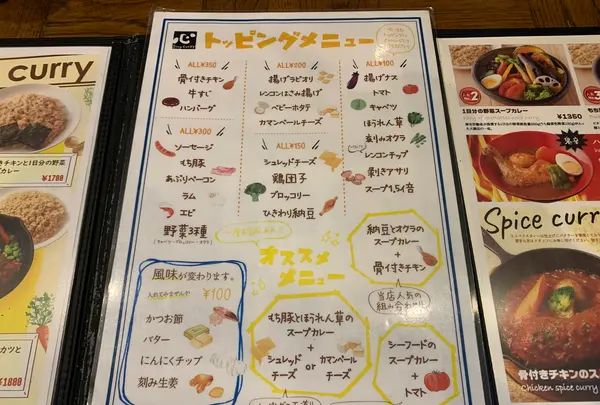 curry
チキンと1日分の野菜
カレー
¥1700
¥1800
トッピングメニュー
ALL¥350
骨付きチキン
牛すじ
ハンバーグ
ALL¥200
揚げラビオリ
レンコンはさみ揚げ
ベビーホタテ
カマンベールチーズ
ALL¥100
揚げナス
トマト
キャベツ
ほうれん草
刻みオクラ
レンコンチップ
剥きアサリ
スープ1.5倍
ALL¥300
ソーセージ
もち豚
あぶりベーコン
ラム
エビ
野菜3種
ALL¥150
シュレッドチーズ
鶏団子
ブロッコリー
ひきわり納豆
オススメ
メニュー
風味が変わります。
入れてみませんか ¥100
かつお節
バター
にんにくチップ
刻み生姜
納豆とオクラの
スープカレー
+
骨付きチキン
当店人気の
組み合わせ
もち豚とほうれん草の
スープカレー
+
シュレッド
チーズ
or
カマンベール
チーズ
シーフードの
スープカレー
+
トマト
1日分の野菜スープカレー
¥1350
Spice curry
骨付きチキンのス
Chicken spice curry